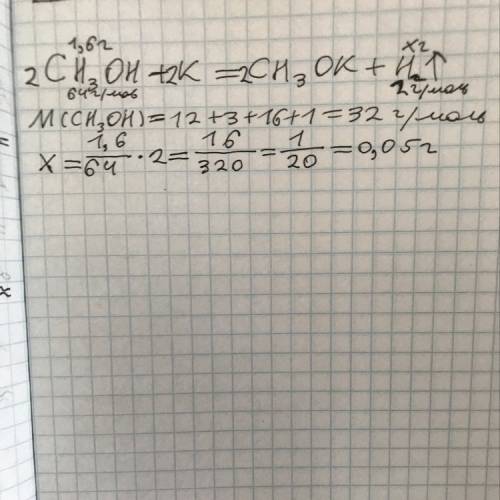 1,6г хг
2CH₃OH + 2K = 2CH₃OK + H₂↑
64г/моль 2г/моль
M(CH₃OH) = 12 + 3 + 16 + 1 = 32 г/моль
X = 1,6/64 · 2 = 16/320 = 1/20 = 0,05г